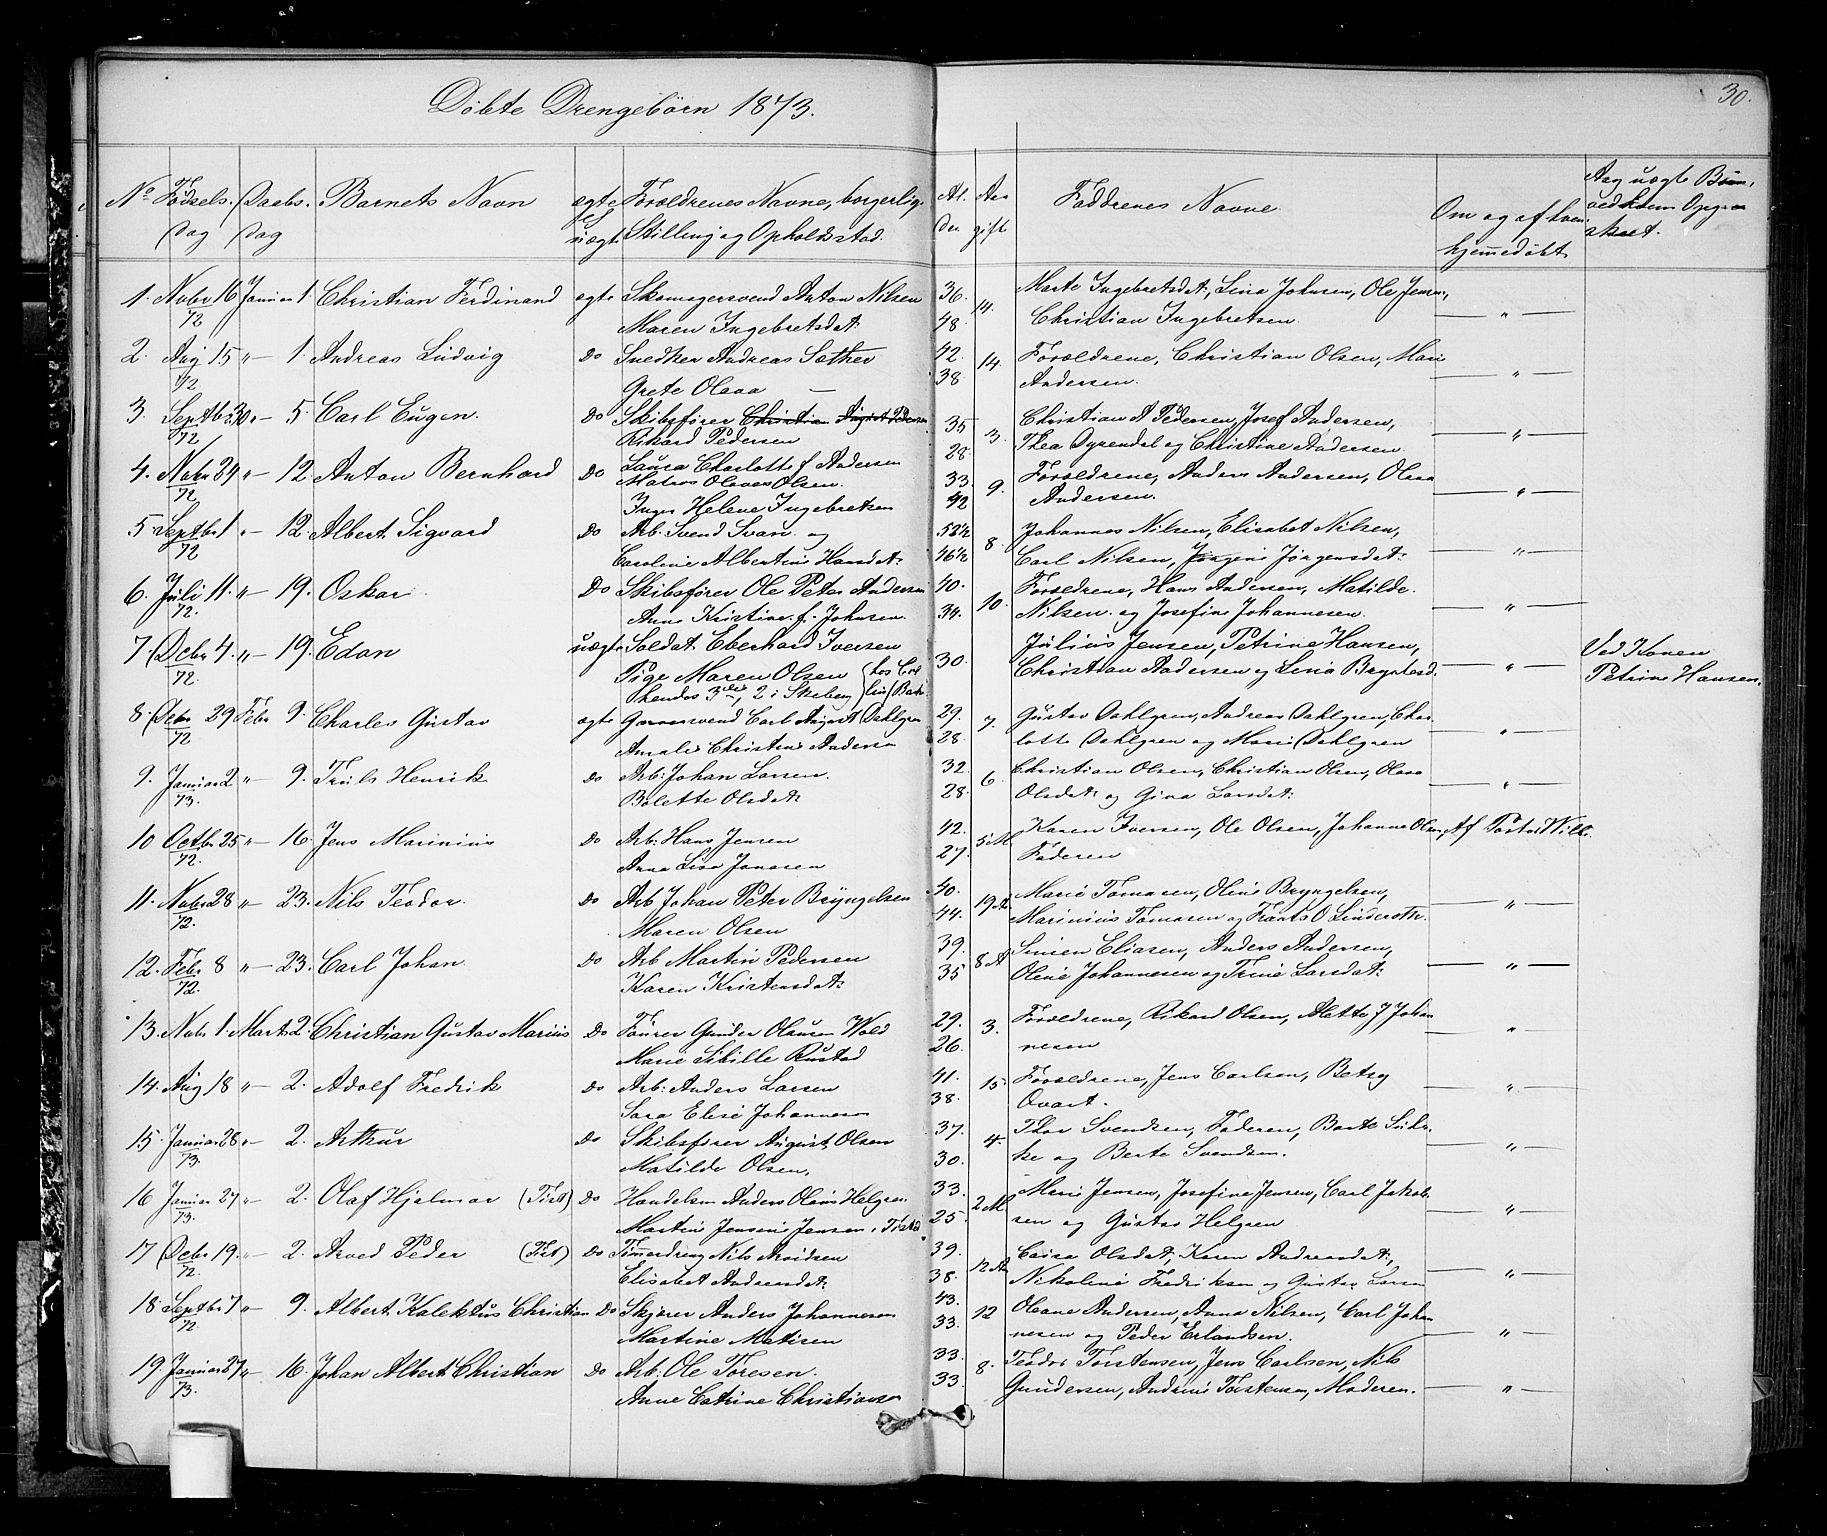 Døbte Drengebørn 1873.
30.
No Fødsels dag Daabs dag Barnets Navn ægte el uægte Forældrenes Navne, borgerlig Stilling og Opholdsted. Al der Aar gift Faddrenes Navne Om og af hvem hjemmedøbt Ang uægte Børn, ved hvem Opgave skeet.
1. Nobr 16 72 Januar 1. Christian Ferdinand ægte Skomagersvend Anton Nilsen 36. 14. Marte Ingebretsdat:, Lina Johnsen, Ole Jensen,
Maren Ingebretsdat: 48. Christian Ingebretsen. — " —
2. Aug 15 72 " — 1. Andreas Ludvig do Snedker Andreas Sæther 42. 14. Forældrene, Christian Olsen, Mari
Grete Olava — 38 Andersen. — " —
3. Septbr 30 72 " — 5. Carl Eugen. do Skibsfører Christian August Pedersen 35 3. Christian A Pedersen, Josef Andersen,
Rikard Pedersen 28. Thea Dyrendal og Christine Andersen. — " —
Laura Charlotte f. Andersen
4. Nobr 29 72 " — 12. Anton Bernhard do Matros Olaves Olsen. 33. 9. Forældrene, Anders Andersen, Olava
Inger Helene Ingebretsen 42 Andersen. — " —
5. Septbr 1 72 " — 12. Albert Sigvard do Arb. Svend Svan og 52½ 8. Johannes Nilsen, Elisabet Nilsen,
Caroline Albertine Hansdat: 46½ Carl Nilsen, Jørgine Jørgensdat: — " —
6. Juli 11. 72. " — 19. Oskar Do Skibsfører Ole Peter Andersen 40. 10. Forældrene, Hans Andersen, Matilde
Anne Kristine f. Johnsen. 34. Nilsen og Josefine Johannesen — " —
7. Decbr 4. 72. " — 19. Edan uægte Soldat Eberhard Iversen 30. Julius Jensen, Petrine Hansen, Ved Konen
Pige Maren Olsen Christian Andersen og Lina — " — Petrine Hansen.
8. Decbr 29 72 Febr 9. Charles Gustav ægte Garversvend Carl August Dahlgren 29. 7. Gustav Dahlgren, Andreas Dahlgren, Char
Amalie Christine Andersen 28. lotte Dahlgren og Marie Dahlgren — " —
9. Januar 2 73. " — 9. Truls Henrik do Arb: Johan Larsen. 32. 6. Christian Olsen, Christian Olsen, Olava
Bolette Olsdat: 28. Olsdat: og Gina Larsdat: — " —
10 Octbr 25 72. " — 16. Jens Marinius do Arb: Hans Jensen 42. 5 M Karen Iversen, Ole Olsen, Johanne Olsen, Af Pastor Wille.
Anna Lisa Jonasen 27. Faderen
11. Nobr 28 72. " — 23. Nils Teodor. do Arb Johan Peter Bryngelsen 40. 19 A Marie Tomasen, Oline Bryngelsen,
Maren Olsen 44. Marinius Tomasen og Frants O Linderoth. — " —
12. Febr 8 72. " — 23. Carl Johan do Arb Martin Pedersen 39. 8 A Simen Eliasen, Anders Andersen,
Karen Kristensdat: 35 Oline Johannesen og Trine Larsdat: — " —
13. Nobr 1. Marts 2. Christian Gustav Marius do Fører Gunder Olausen Wold 29. 3. Forældrene, Rikard Olsen, Alette J Johan
Marie Sibille Rustad 26. nesen — " —
14. Aug 18 " — 2. Adolf Fredrik do Arb: Anders Larsen 41. 15. Forældrene, Jens Carlsen, Betsy
Sara Elise Johannesen 38. Qvart. — " —
15. Januar 28 73. " — 2. Arthur do Skibsfører August Olsen 37. 4. Thor Svendsen, Faderen, Berte
Matilde Olsen. 30. og Berte Svendsen. — " —
16 Januar 27 73. " — 2. Olaf Hjalmar (Tist) do Handelsm Anders Olaus Helgren 33. 2 M Marie Jensen, Josefine Jensen, Carl Jakob
Martine Jensine Jensen i Tisted 25. sen og Gustav Helgren — " —
17 Decbr 19. 72. " — 2. Arved Peder (Tist) do Tømmerdreng Nils Arvidsen 39. 12 A Caisa Olsdat, Karen Andreasdat:,
Elisabet Andreasdat: 38. Nikoline Fredriksen og Gustav Larsen — " —
18. Septbr 7 72 " — 9. Albert Kalektus Christian do Skjærer Anders Johannesen 43. 12 Oleane Andersen, Anna Nilsen, Carl Johan
Martine Matisen 33. nesen og Peder Erlandsen. — " —
19 Januar 27 73. " — 16. Johan Albert Christian do Arb: Ole Toresen. 33. 8. Teodor Torstensen, Jens Carlsen, Nils
Anne Catrine Christiansen 33. Gundersen, Andrine Torstensen, Moderen. — " —